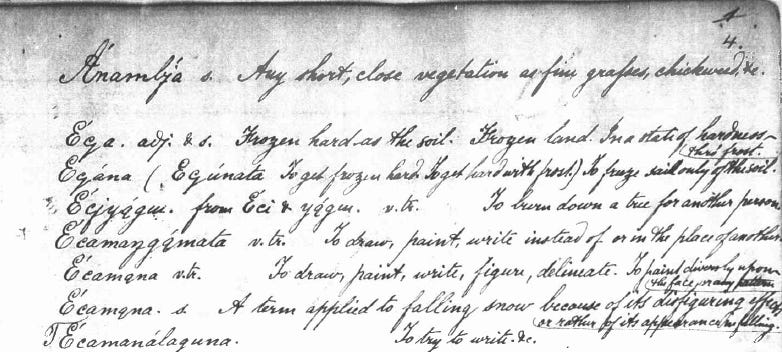 4.
Ánambja s. Any short, close vegetation as fine grasses, chickweed, &c.
Éga. adj. & s. Frozen hard as the soil. Frozen land. In a state of hardness
thro' frost.
Égána ( Egúnata To get frozen hard. To get hard with frost.) To freeze said only of the soil.
from Éci & v. tr. To burn down a tree for another person
v. tr. To draw, paint, write instead of or in the place of another
Écamana v. tr. To draw, paint, write, figure, delineate. To paint diversly upon
the face, or any pattern
Écamana. s. A term applied to falling snow because of its disfiguring effect,
or rather of its appearance in falling.
Écamanálaguna. To try to write. &c.